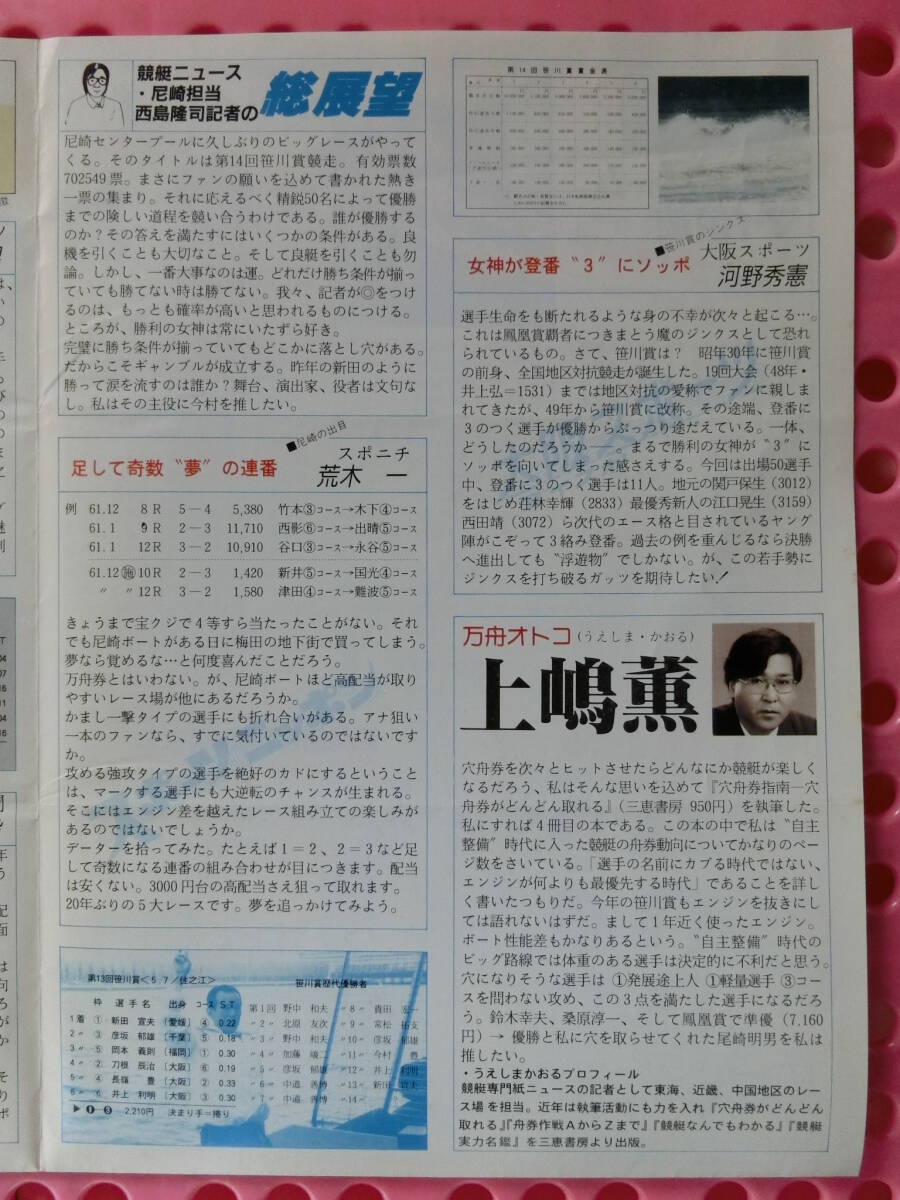 競艇ニュース
・尼崎担当
西島隆司記者の
総展望
尼崎センタープールに久しぶりのビッグレースがやって
くる。そのタイトルは第14回笹川賞競走。有効票数
702549票。まさにファンの願いを込めて書かれた熱き
一票の集まり。それに応えるべく精鋭50名によって優勝
までの険しい道程を競い合うわけである。誰が優勝する
のか?その答えを満たすにはいくつかの条件がある。良
機を引くことも大切なこと。そして良艇を引くことも勿
論。しかし、一番大事なのは運。どれだけ勝ち条件が揃っ
ていても勝てない時は勝てない。我々、記者が◎をつけ
るのは、もっとも確率が高いと思われるものにつける。
ところが、勝利の女神は常にいたずら好き。
完璧に勝ち条件が揃っていてもどこかに落とし穴がある。
だからこそギャンブルが成立する。昨年の新田のように
勝って涙を流すのは誰か?舞台、演出家、役者は文句な
し。私はその主役に今村を推したい。
■尼崎の出目
足して奇数〝夢〟の連番
スポニチ
荒木 一
例 61.12 8R 5―4 5,380 竹本③コース→木下④コース
61.1 9R 2―3 11,710 西影⑥コース→出晴⑤コース
61.1 12R 3―2 10,910 谷口③コース→永谷⑤コース
61.12 施10R 2―3 1,420 新井⑤コース→国光④コース
〃 〃12R 3―2 1,580 津田④コース→難波⑤コース
きょうまで宝クジで4等すら当たったことがない。それ
でも尼崎ボートがある日に梅田の地下街で買ってしまう。
夢なら覚めるな…と何度喜んだことだろう。
万舟券とはいわない。が、尼崎ボートほど高配当が取り
やすいレース場が他にあるだろうか。
かまし一撃タイプの選手にも折れ合いがある。アナ狙い
一本のファンなら、すでに気付いているのではないです
か。
攻める強攻タイプの選手を絶好のカドにするということ
は、マークする選手にも大逆転のチャンスが生まれる。
そこにはエンジン差を越えたレース組み立ての楽しみが
あるのではないでしょうか。
データーを拾ってみた。たとえば1=2、2=3など足
して奇数になる連番の組み合わせが目につきます。配当
は安くない。3000円台の高配当さえ狙って取れます。
20年ぶりの5大レースです。夢を追っかけてみよう。
第13回笹川賞<5/7/住之江>
枠 選手名 出身 コース ST
1着 ① 新田 宣夫 〔愛媛〕 ④ 0.22
〃2〃 ③ 彦坂 郁雄 〔千葉〕 ⑤ 0.18
〃3〃 ⑤ 岡本 義則 〔福岡〕 ① 0.30
〃4〃 ② 刀根 辰治 〔大阪〕 ⑥ 0.19
〃5〃 ④ 長嶺 豊 〔大阪〕 ② 0.33
〃6〃 ⑥ 井上 利明 〔大阪〕 ③ 0.30
▶❶―❸ 2,210円 決まり手=捲り
笹川賞歴代優勝者
第1回 野中 和夫 〃8〃 貴田 宏一
〃2〃 北原 友次 〃9〃 常松 拓支
〃3〃 野中 和夫 〃10〃 彦坂 郁雄
〃4〃 加藤 峻二 〃11〃 今村 豊
〃5〃 彦坂 郁雄 〃12〃 井上 利明
〃6〃 中道 善博 〃13〃 新田 宣夫
〃7〃 中道 善博 〃14〃
第14回笹川賞賞金表
■笹川賞のジンクス
女神が登番〝3〟にソッポ
大阪スポーツ
河野秀憲
選手生命をも断たれるような身の不幸が次々と起こる…。
これは鳳凰賞覇者につきまとう魔のジンクスとして恐れ
られているもの。さて、笹川賞は? 昭和30年に笹川賞
の前身、全国地区対抗競走が誕生した。19回大会(48年・
井上弘=1531)までは地区対抗の愛称でファンに親しま
れてきたが、49年から笹川賞に改称。その途端、登番に
3のつく選手が優勝からぷっつり途だえている。一体、
どうしたのだろうか――。まるで勝利の女神が〝3〟に
ソッポを向いてしまった感さえする。今回は出場50選手
中、登番に3のつく選手は11人。地元の関戸保生(3012)
をはじめ荘林幸輝(2833)最優秀新人の江口晃生(3159)
西田靖(3072)ら次代のエース格と目されているヤング
陣がこぞって3絡み登番。過去の例を重んじるなら決勝
へ進出しても〝浮遊物〟でしかない。が、この若手勢に
ジンクスを打ち破るガッツを期待したい!
万舟オトコ(うえしま・かおる)
上嶋薫
穴舟券を次々とヒットさせたらどんなにか競艇が楽しく
なるだろう、私はそんな思いを込めて『穴舟券指南―穴
舟券がどんどん取れる』(三恵書房 950円)を執筆した。
私にすれば4冊目の本である。この本の中で私は〝自主
整備〟時代に入った競艇の舟券動向についてかなりのペー
ジ数をさいている。「選手の名前にカブる時代ではない、
エンジンが何よりも最優先する時代」であることを詳し
く書いたつもりだ。今年の笹川賞もエンジンを抜きにし
ては語れないはずだ。まして1年近く使ったエンジン。
ボート性能差もかなりあるという。〝自主整備〟時代の
ビッグ路線では体重のある選手は決定的に不利だと思う。
穴になりそうな選手は ①発展途上人 ①軽量選手 ③コー
スを問わない攻め、この3点を満たした選手になるだろ
う。鈴木幸夫、桑原淳一、そして鳳凰賞で準優(7,160
円)→ 優勝と私に穴を取らせてくれた尾崎明男を私は
推したい。
・うえしまかおるプロフィール
競艇専門紙ニュースの記者として東海、近畿、中国地区のレー
ス場を担当。近年は執筆活動にも力を入れ『穴舟券がどんどん
取れる』『舟券作戦AからZまで』『競艇なんでもわかる』『競艇
実力名鑑』を三恵書房より出版。